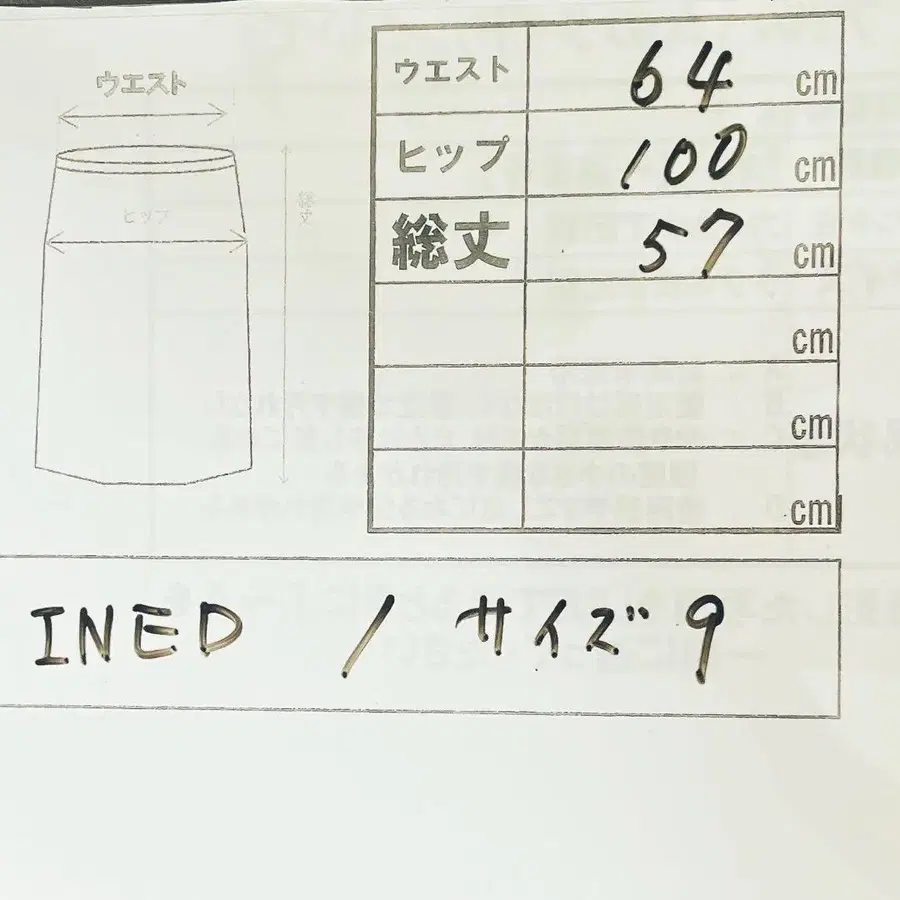 ウエスト
ヒップ
総丈
ウエスト 64 cm
ヒップ 100 cm
総丈 57 cm
cm
cm
cm
INED / サイズ 9